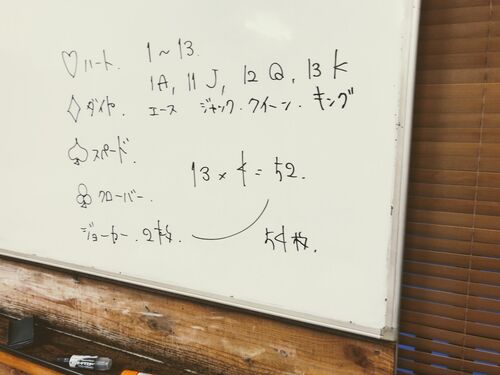 ♡ハート. 1~13.
1A, 11J, 12Q, 13K
♢ダイヤ. エース ジャック. クイーン. キング
♤スペード.
13×4=52.
♧クローバー.
ジョーカー. 2枚.
54枚.